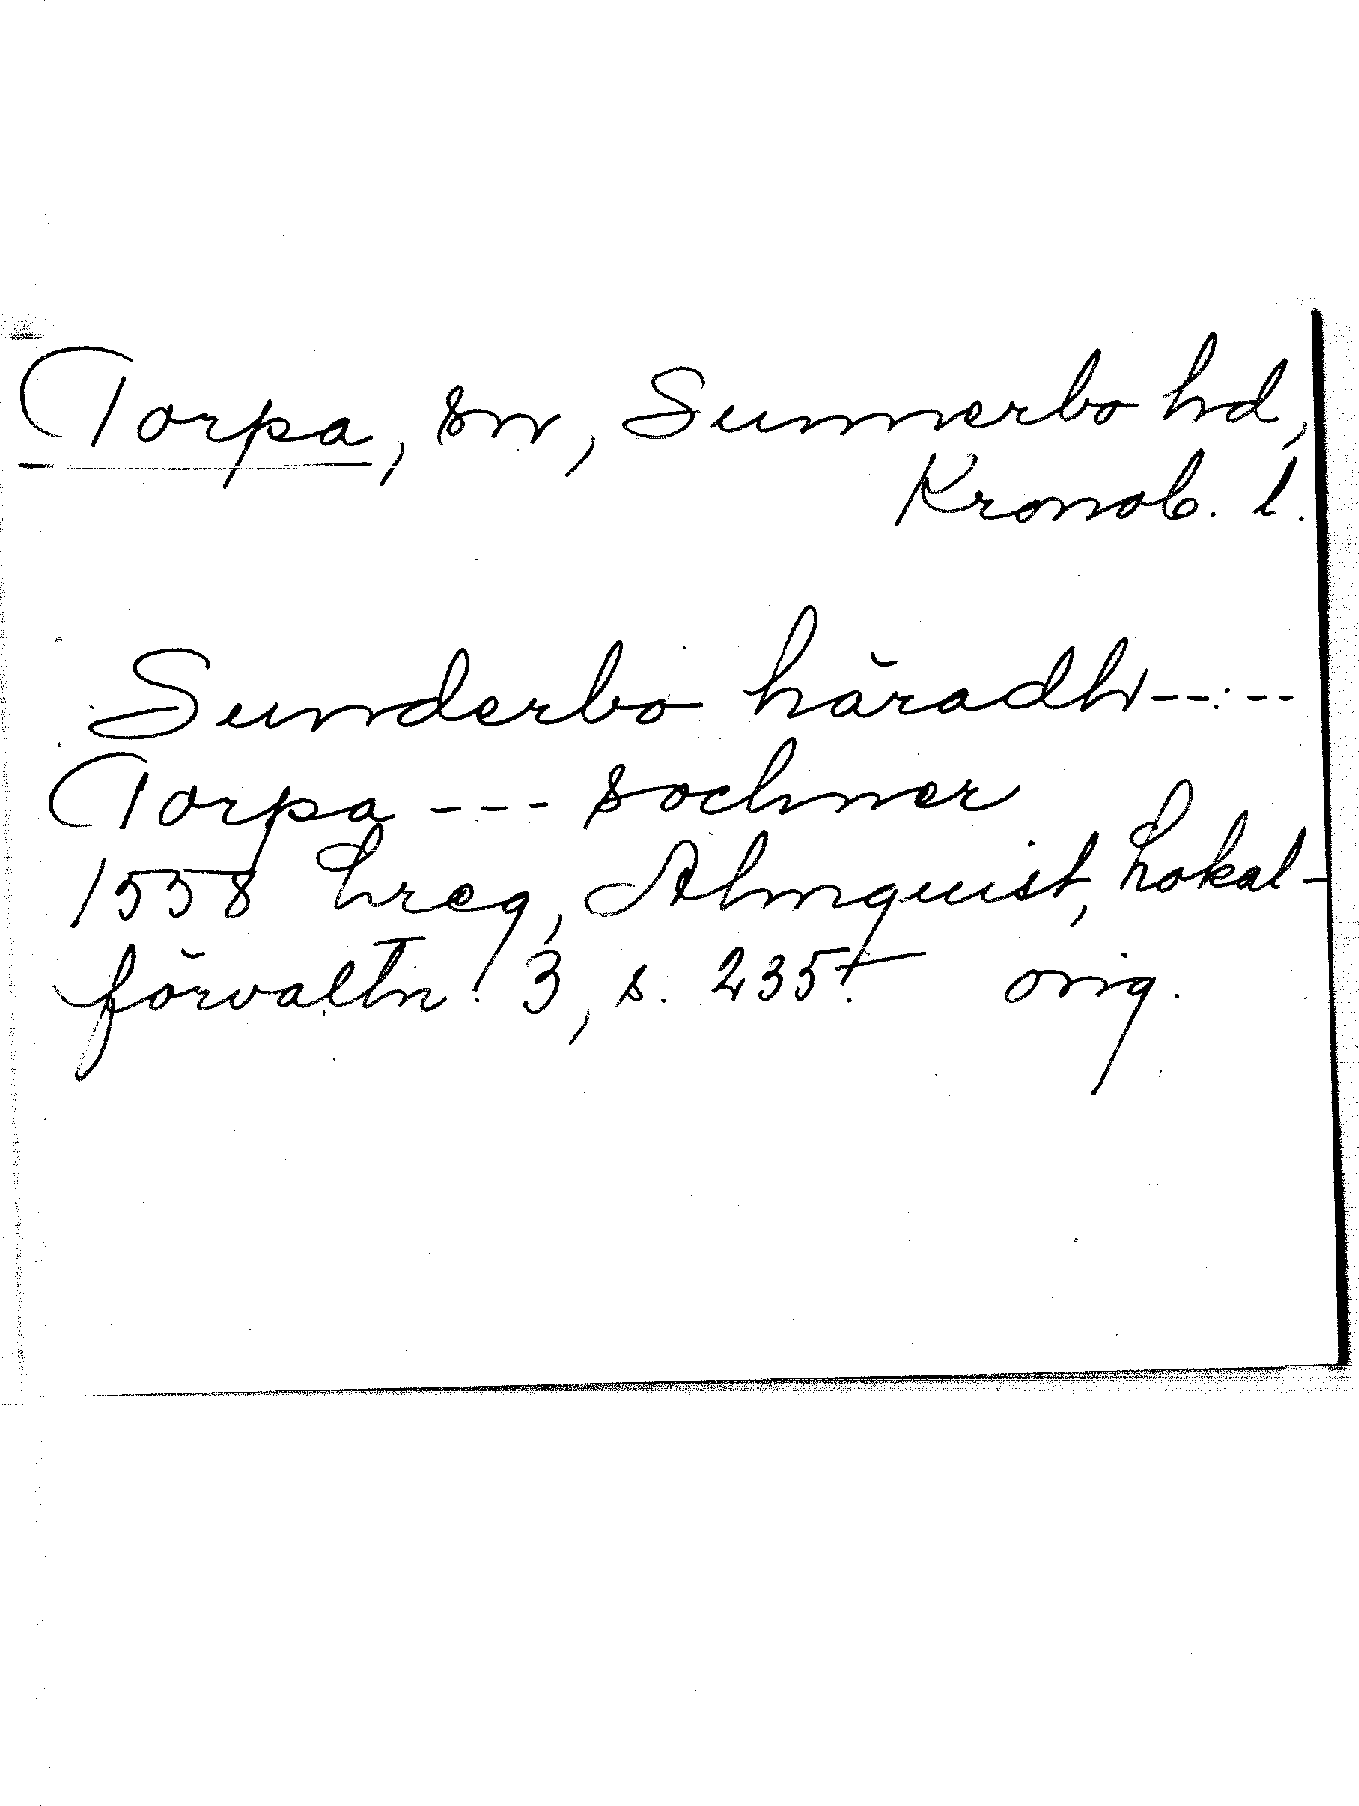 Torpa, sn, Sunnerbo hd,
Kronob. l.
Sunderbo häradh-----
Torpa --- sochner
1558 Lreg, Almquist, Lokal-
förvaltn. 3, s. 235f. orig.